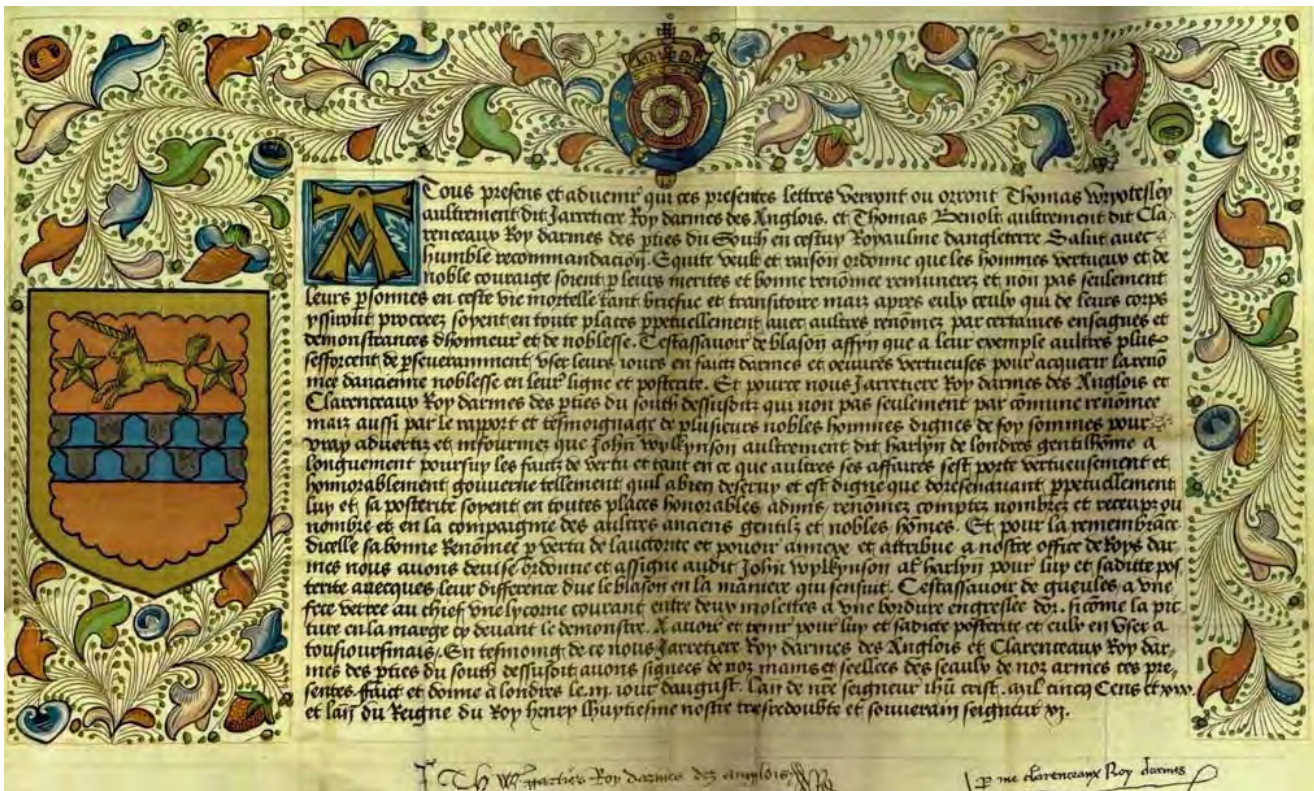 A Tous presens et advenir qui ces presentes lettres verront ou orront Thomas Wryotesley
aultrement dit Jarretiere Roy darmes des Anglois. et Thomas Benolt aultrement dit Cla
renceaux Roy darmes des pties du South en cestuy Royaulme dangleterre Salut avec
humble recommandacion. Equite veult et raison ordonne que les hommes vertueux et de
noble couraige soient p leurs merites et bonne renõmee remunerez et non pas seulement
leurs psonnes en ceste vie mortelle tant briefue et transitoire mais apres eulx ceulx qui de leurs corps
yssiront procreez soyent en toute places ppetuellement avec aultres renõmez par certaines enseignes et
demonstrances dhonneur et de noblesse. Cestassavoir de blason affyn que a leur exemple aultres plus
sefforcent de pseveramment vser leurs iours en faictz darmes et oeuvres vertueuses pour acquerir la renõ
mee dancienne noblesse en leur ligne et posterite. Et pource nous Jarretiere Roy darmes des Anglois et
Clarenceaux Roy darmes des pties du south dessusditz qui non pas seulement par cõmune renõmee
mais aussi par le rapport et tesmoignage de plusieurs nobles hommes dignes de foy sommes pour
vray advertiz et infourmez que John Wylkynson aultrement dit harlyn de londres gentilhõme a
longuement poursuy les faictz de vertu et tant en ce que aultres ses affaires sest porte vertueusement et
honnorablement gouverne tellement quil a bien deseruy et est digne que doresenavant ppetuellement
luy et sa posterite soyent en toutes places honorables admis, renõmez comptez nombrez et receupz ou
nombre et en la compaignie des aultres anciens gentilz et nobles hõmes. Et pour la remembrãce
dicelle sa bonne Renõmee p vertu de lauctorite et povoir annexe et attribue a nostre office de Roys dar
mes nous avons devise ordonne et assigne audit John Wylkynson al harlyn pour luy et sadicte pos
terite avecques leur difference due le blason en la maniere qui sensuit. Cestassavoir de gueules a vne
fece verree au chief vne lycorne courant entre deux molettes a vne bordure engreslee dor. sicõme la pic
ture en la marge cy devant le demonstre. A avoir et tenir pour luy et sadicte posterite et eulx en vser a
tousiourſmais. En tesmoing de ce nous Jarretiere Roy darmes des Anglois et Clarenceaux Roy dar
mes des pties du south dessusdit avons signees de noz mains et seellees des seaulx de noz armes ces pre
sentes. ffaict et donne a londres le iour daugust. lan de nre seigneur ihũ crist. mil cincq Cens et
et lan du Reigne du Roy henry lhuytiesme nostre tresredoubte et souverain seigneur vj.
Th Wr garties Roy darmes dez anglois
p me clarenceaux Roy darmes